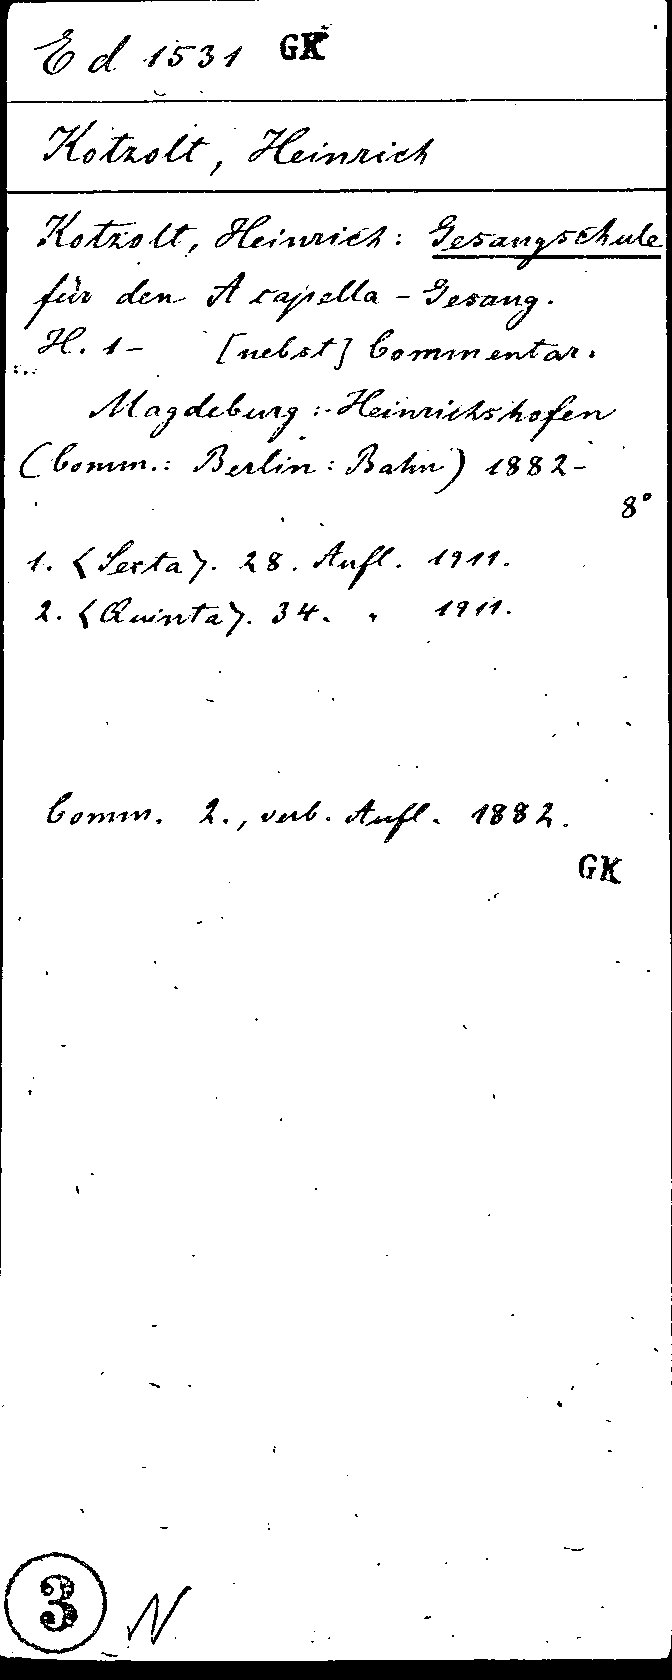 Ed 1531 GK
Kotzolt, Heinrich
Kotzolt, Heinrich: Gesangschule
für den A capella-Gesang.
H. 1- [nebst] Commentar.
Magdeburg: Heinrichshofen
(Comm.: Berlin: Bahn) 1882-
8°
1. <Sexta>. 28. Aufl. 1911.
2. <Quinta>. 34. " 1911.
Comm. 2., verb. Aufl. 1882.
GK
3 N